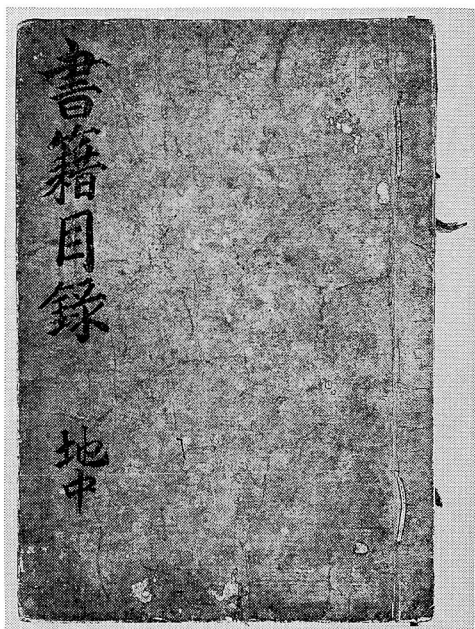 書籍目錄 地中